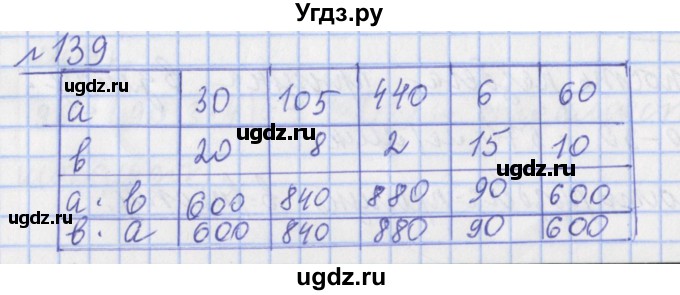 Угдз.ру
№139
a 30 105 440 6 60
в 20 8 2 15 10
a · в 600 840 880 90 600
в · a 600 840 880 90 600
ugdz.ru
ugdz.ru
ugdz.ru
ugdz.ru
ugdz.ru
ugdz.ru
ugdz.ru
ugdz.ru